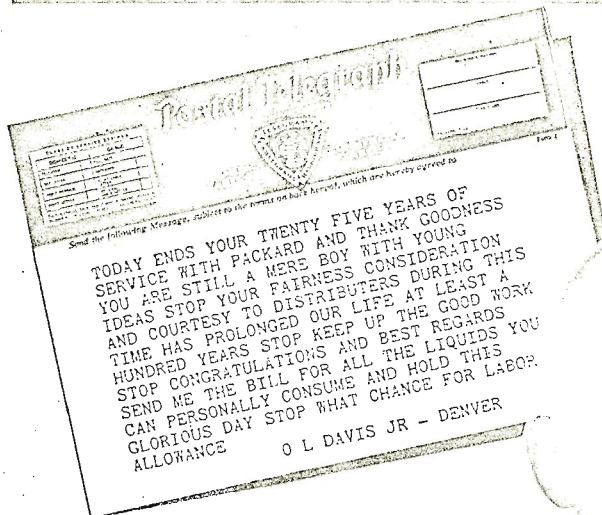 Postal Telegraph
Send the following Message, subject to the terms on back hereof, which are hereby agreed to
TODAY ENDS YOUR TWENTY FIVE YEARS OF
SERVICE WITH PACKARD AND THANK GOODNESS
YOU ARE STILL A MERE BOY WITH YOUNG
IDEAS STOP YOUR FAIRNESS CONSIDERATION
AND COURTESY TO DISTRIBUTERS DURING THIS
TIME HAS PROLONGED OUR LIFE AT LEAST A
HUNDRED YEARS STOP KEEP UP THE GOOD WORK
STOP CONGRATULATIONS AND BEST REGARDS
SEND ME THE BILL FOR ALL THE LIQUIDS YOU
CAN PERSONALLY CONSUME AND HOLD THIS
GLORIOUS DAY STOP WHAT CHANCE FOR LABOR
ALLOWANCE O L DAVIS JR - DENVER